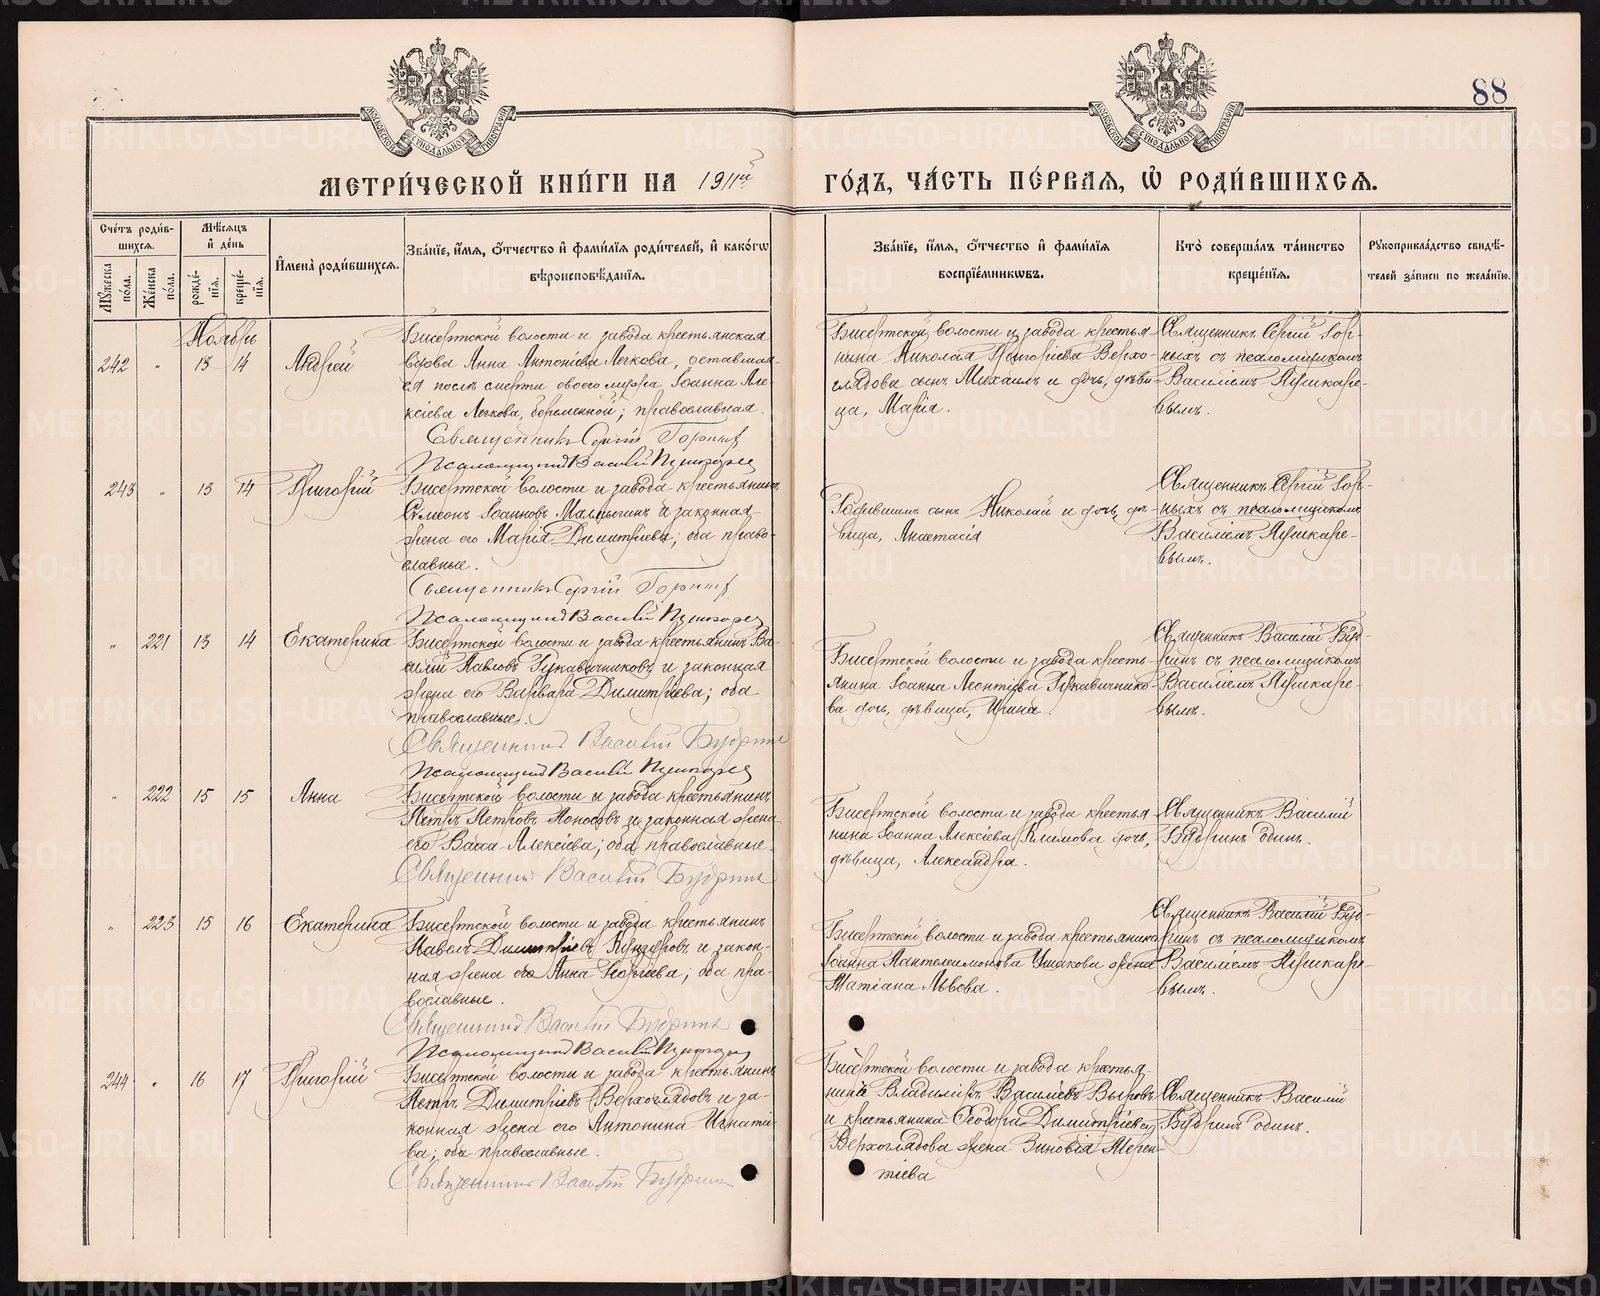 88
МЕТРИ́ЧЕСКОЙ КНИ́ГИ НА 1911й ГО́ДЪ, ЧА́СТЬ ПЕ́РВАЯ, Ѿ РОДИ́ВШИХСЯ.
Сче́тъ роди́в-
шихся.
Мꙋ́жеска по́ла.
Же́нска по́ла.
Мѣ́сяцъ
и҆ де́нь
рожде́-
нїя.
креще́-
нїя.
И҆мена̀ роди́вшихся.
Зва́нїе, и҆́мя, ѻ҆́тчество и҆ фами́лїя роди́телей, и҆ како́гѡ
вѣроисповѣ́данїя.
Зва́нїе, и҆́мя, ѻ҆́тчество и҆ фами́лїя
воспрїе́мникѡвъ.
Кто̀ соверша́лъ та́инство
креще́нїя.
Рꙋкоприкла́дство свидѣ́-
телей за́писи по жела́нїю.
Ноябрь
242 " 13 14 Андрей
Бисертской волости и завода крестьянская
вдова Анна Антонiева Легкова, оставшая-
ся послѣ смерти своего мужа, Iоанна Але-
ксiева Легкова, беременной; православная.
Священникъ Сергiй Горных
Псаломщикъ Василiй Пушкарев
Бисертской волости и завода крестья-
нина Николая Григорiева Верхо-
глядова сынъ Михаилъ и дочь, дѣви-
ца, Марiя.
Священникъ Сергiй Гор-
ныхъ съ псаломщикомъ
Василiемъ Пушкаре-
вымъ.
243 " 13 14 Григорiй
Бисертской волости и завода крестьянинъ
Сѵмеонъ Iоанновъ Малыгинъ и законная
жена его Марiя Димитрiева; оба право-
славные.
Священникъ Сергiй Горных
Псаломщикъ Василiй Пушкарев
Родившихъ сынъ Николай и дочь, дѣ-
вица, Анастасiя
Священникъ Сергiй Гор-
ныхъ съ псаломщикомъ
Василiемъ Пушкаре-
вымъ.
" 221 13 14 Екатерина
Бисертской волости и завода крестьянинъ Ва-
силiй Павловъ Рукавичниковъ и законная
жена его Варвара Димитрiева; оба
православные.
Священникъ Василiй Будринъ
Псаломщикъ Василiй Пушкарев
Бисертской волости и завода кресть-
янина Iоанна Леонтiева Рукавичнико-
ва дочь, дѣвица, Ирина.
Священникъ Василiй Буд-
ринъ съ псаломщикомъ
Василiемъ Пушкаре-
вымъ.
" 222 15 15 Анна
Бисертской волости и завода крестьянинъ
Петръ Петровъ Поносовъ и законная жена
его Васса Алексiева; оба православные.
Священникъ Василiй Будринъ
Бисертской волости и завода крестья-
нина Iоанна Алексiева Климова дочь,
дѣвица, Александра.
Священникъ Василiй
Будринъ одинъ.
" 223 15 16 Екатерина
Бисертской волости и завода крестьянинъ
Павелъ Димитрiевъ и закон-
ная жена его Анна Георгiева; оба пра-
вославные.
Священникъ Василiй Будринъ
Псаломщикъ Василiй Пушкарев
Бисертской волости и завода крестьянина
Iоанна Пантелеимонова Ушакова жена
Татiана Львова.
Священникъ Василiй Буд-
ринъ съ псаломщикомъ
Василiемъ Пушкаре-
вымъ.
244 " 16 17 Григорiй
Бисертской волости и завода крестьянинъ
Петръ Димитрiевъ Верхоглядовъ и за-
конная жена его Антонина Игнатiе-
ва; оба православные.
Священникъ Василiй Будринъ
Бисертской волости и завода крестья-
нинъ Владимiръ Василiевъ Выровъ
и крестьянина Ѳеодора Димитрiева
Верхоглядова жена Зиновiя Терен-
тiева
Священникъ Василiй
Будринъ одинъ.
METRIKI.GASO-URAL.RU